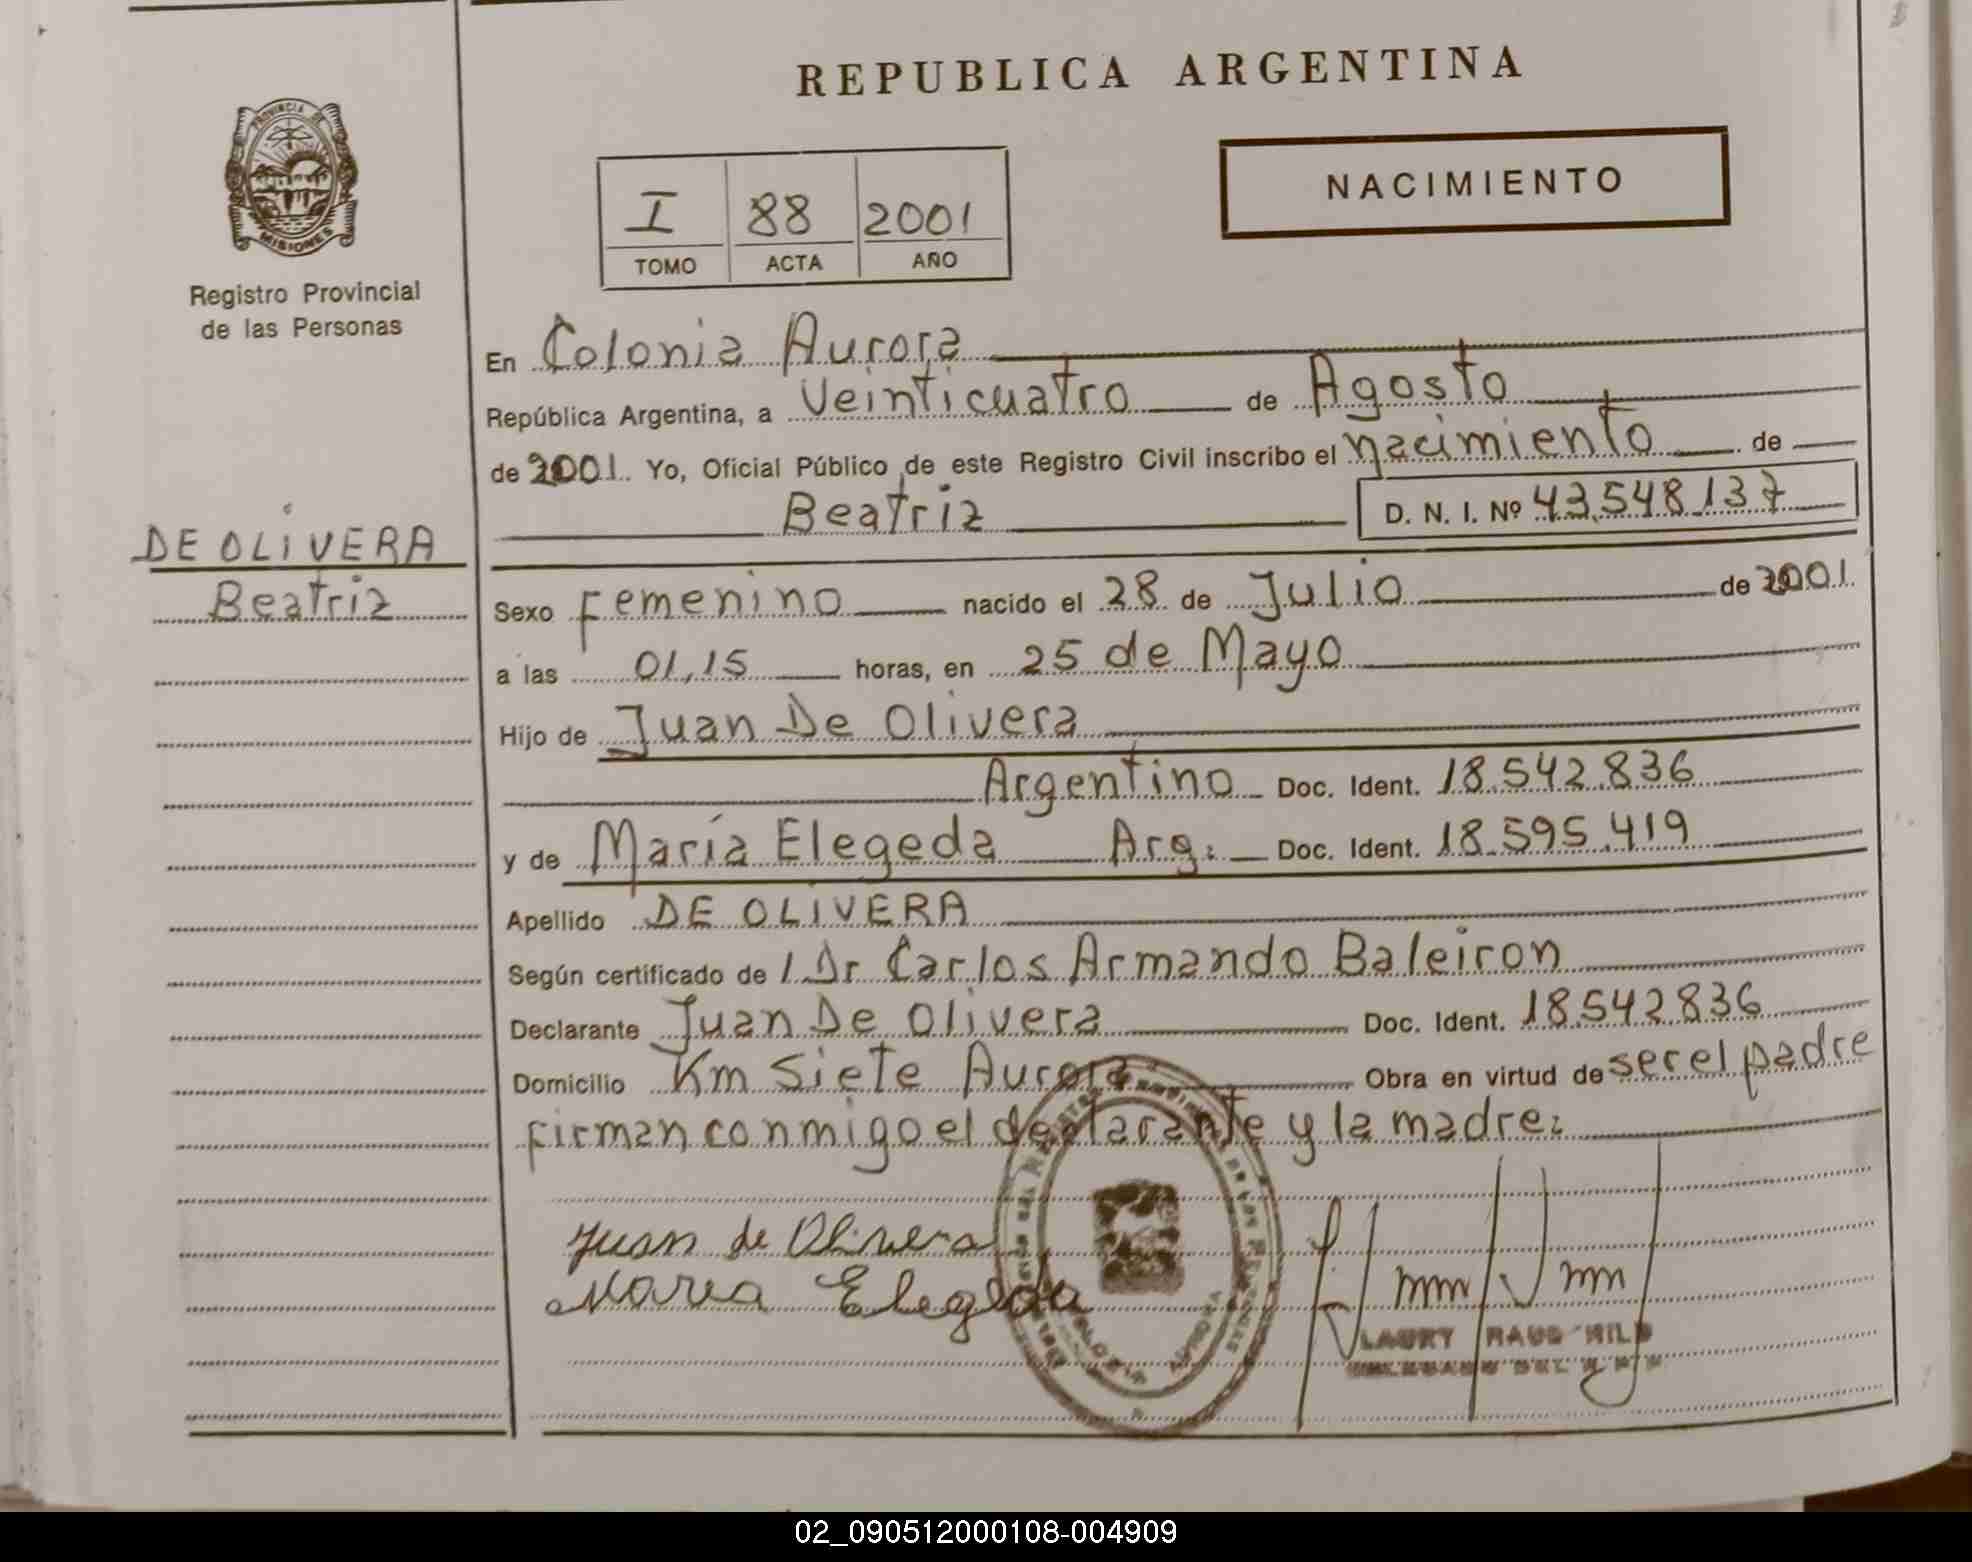 REPUBLICA ARGENTINA
PROVINCIA DE
MISIONES
Registro Provincial
de las Personas
I 88 2001
TOMO ACTA AÑO
NACIMIENTO
En Colonia Aurora
República Argentina, a Veinticuatro de Agosto
de 2001. Yo, Oficial Público de este Registro Civil inscribo el nacimiento de
Beatriz D. N. I. Nº 43.548.137
DE OLIVERA
Beatriz
Sexo Femenino nacido el 28 de Julio de 2001.
a las 01,15 horas, en 25 de Mayo
Hijo de Juan De Olivera
Argentino Doc. Ident. 18.542.836
y de María Elegeda Arg: Doc. Ident. 18.595.419
Apellido DE OLIVERA
Según certificado de / Dr Carlos Armando Baleiron
Declarante Juan De Olivera Doc. Ident. 18.542836
Domicilio Km Siete Aurora Obra en virtud de ser el padre
firman conmigo el declarante y la madre:
Juan de Olivera
Maria Elegeda
COLONIA AURORA
LAURY
02_090512000108-004909